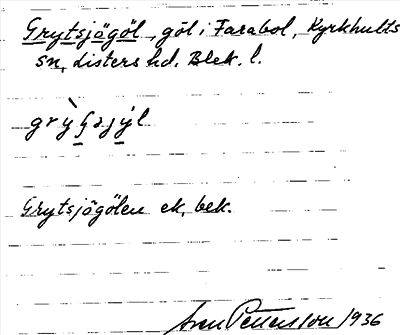 Grytsjögöl, göl i Farabol, Kyrkhults
sn, Listers hd. Blek. l.
Grytsjögölen ek, bek.
Sven Petersson 1936